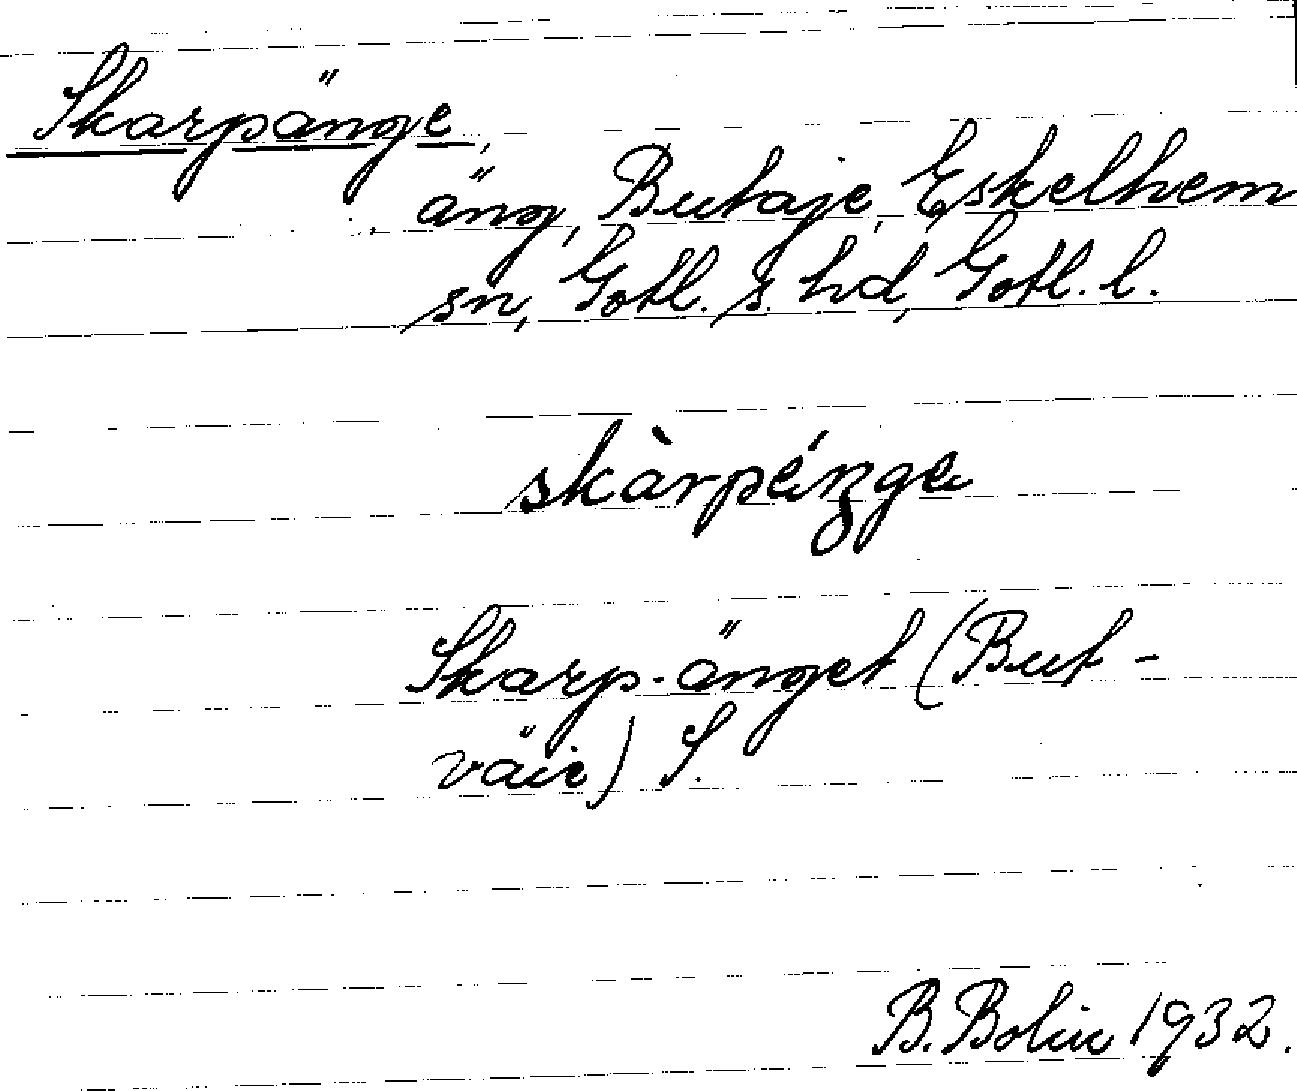 Skarpänge,
äng, Butaje, Eskelhem
sn, Gotl. s. hd, Gotl. l.
skàrpéŋge
Skarp-änget (But-
väie) S.
B. Bolin 1932.